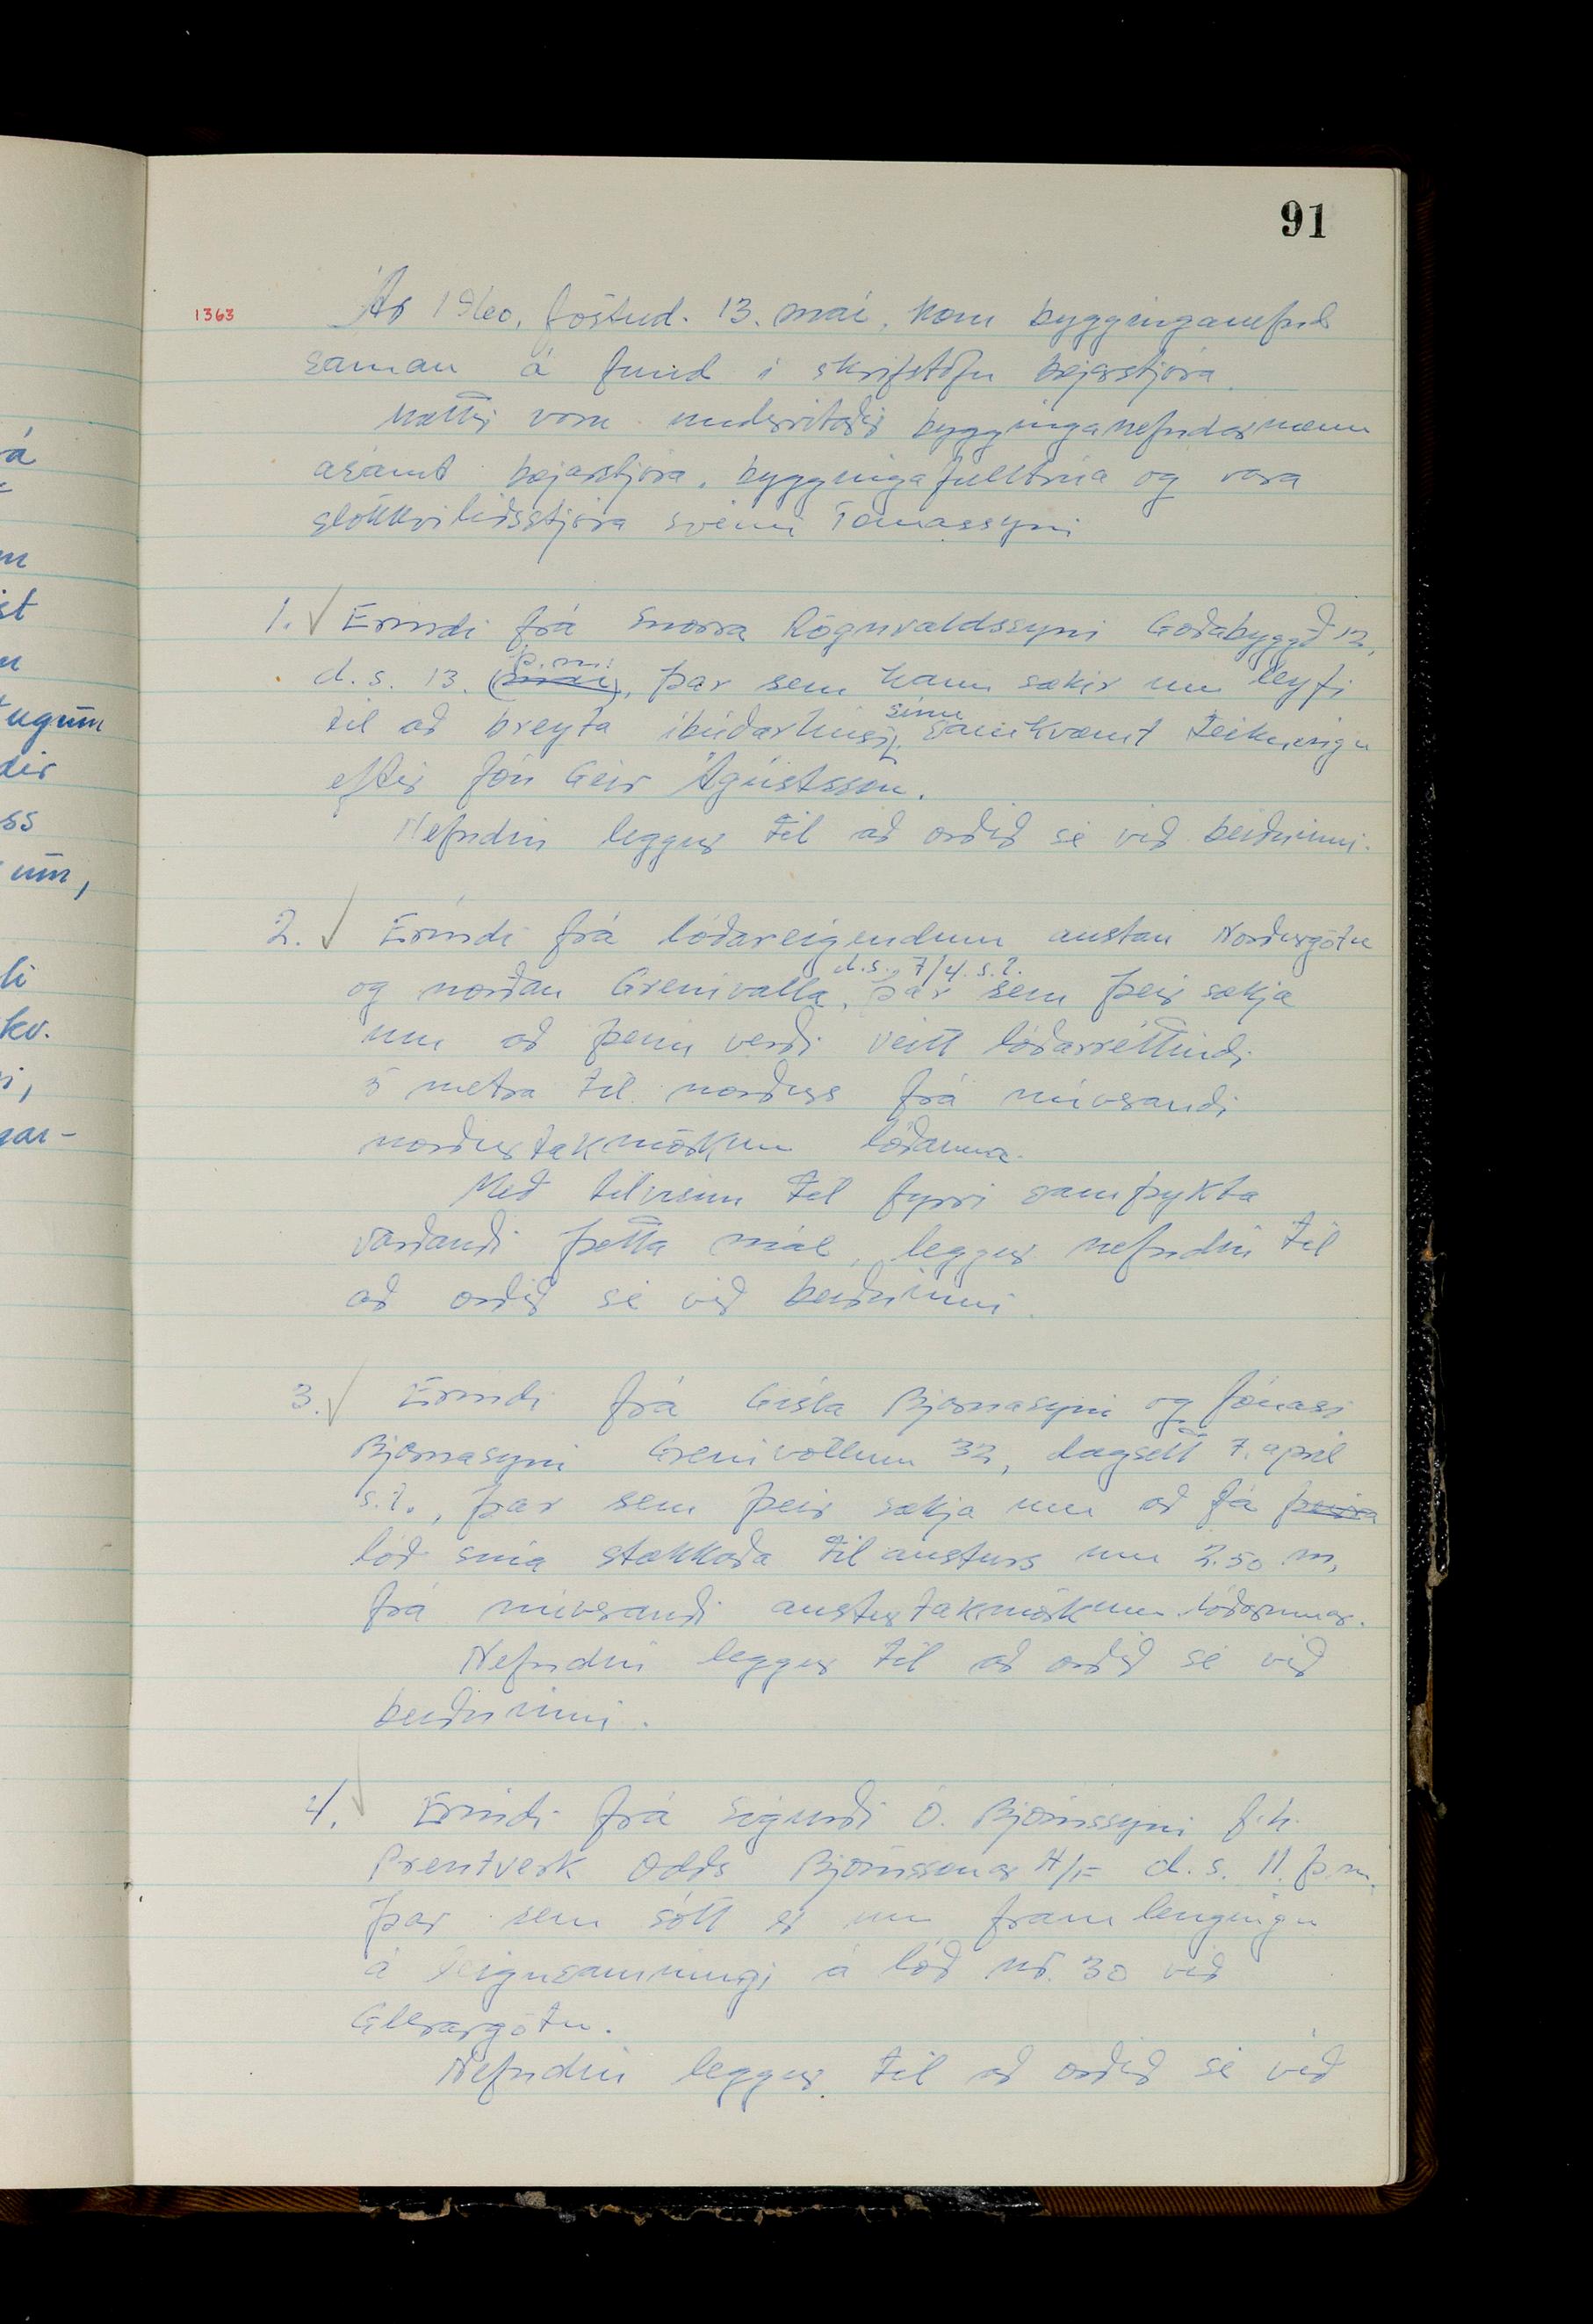 91
1363
Ár 1960, föstud. 13. maí, kom bygginganefnd
saman á fund í skrifstofu bæjarstjóra.
Mættir voru undirritaðir bygginganefndarmenn
ásamt bæjarstjóra, byggingafulltrúa og vara
slökkviliðsstjóra Sveini Tómassyni
1. ✓ Erindi frá Snorra Rögnvaldssyni Goðabyggð 12,
d.s. 13. (maí) þ.m., þar sem hann sækir um leyfi
til að breyta íbúðarhúsi sínu samkvæmt teikningu
eftir Jón Geir Ágústsson.
Nefndin leggur til að orðið sé við beiðninni.
2. ✓ Erindi frá lóðareigendum austan Norðurgötu
og norðan Grenivalla, d.s. 7/4. s.l. þar sem þeir sækja
um að þeim verði veitt lóðarréttindi
5 metra til norðurs frá núverandi
norðurtakmörkum lóðanna.
Með tilvísun til fyrri samþykta
varðandi þetta mál, leggur nefndin til
að orðið sé við beiðninni.
3. ✓ Erindi frá Gísla Bjarnasyni og Jónasi
Bjarnasyni Grenivöllum 32, dagsett 7. apríl
s.l., þar sem þeir sækja um að fá þeirra
lóð sína stækkaða til austurs um 2.50 m,
frá núverandi austurtakmörkum lóðarinnar.
Nefndin leggur til að orðið sé við
beiðninni.
4. ✓ Erindi frá Sigurði Ó. Björnssyni f.h.
Prentverk Odds Björnssonar H/F d.s. 11. þ.m.
þar sem sótt er um framlengingu
á leigusamningi á lóð nr. 30 við
Glerárgötu.
Nefndin leggur til að orðið sé við